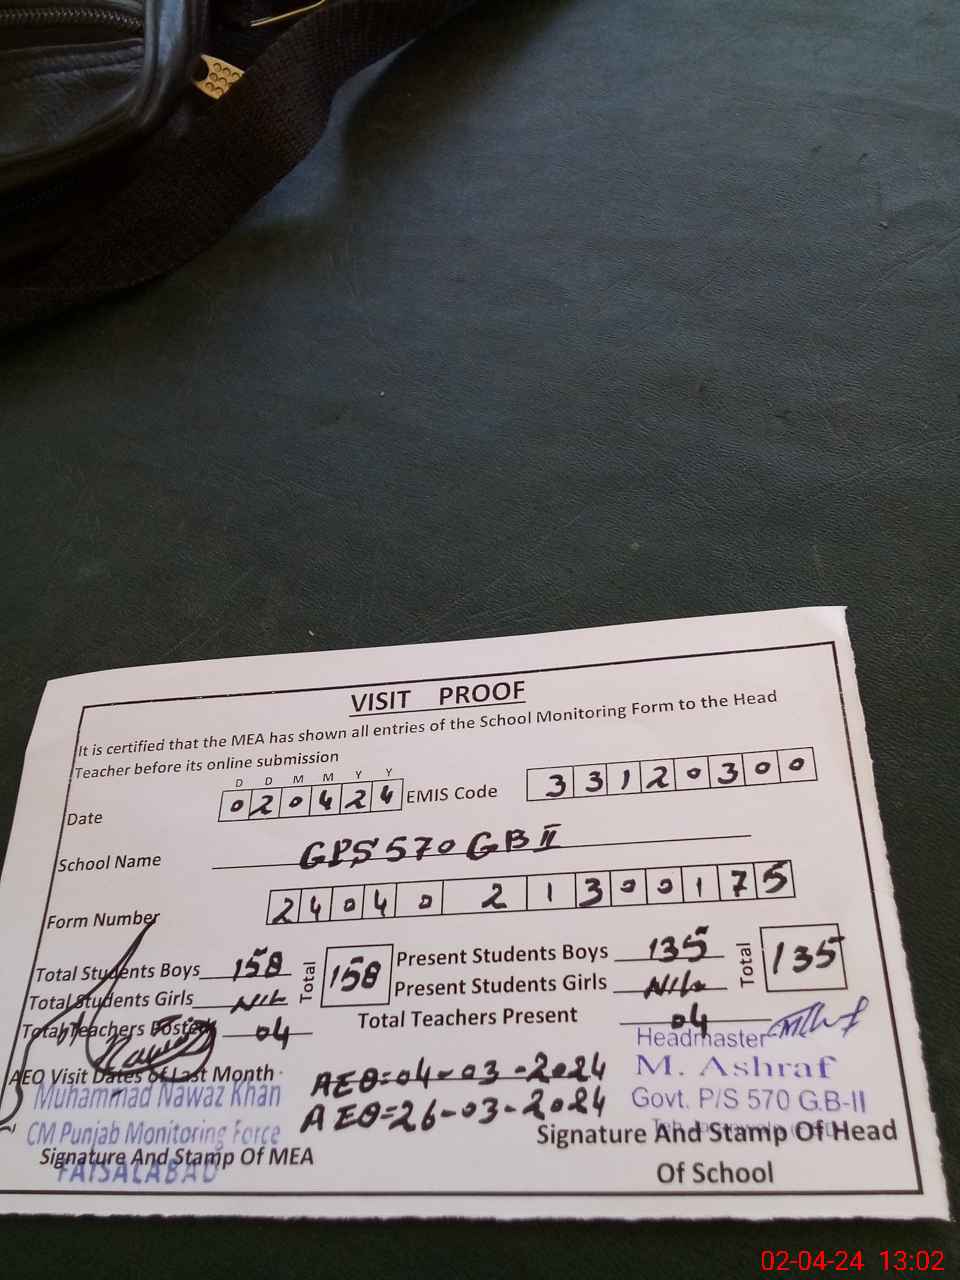 VISIT PROOF
It is certified that the MEA has shown all entries of the School Monitoring Form to the Head
Teacher before its online submission
D D M M Y Y
Date 020424 EMIS Code 33120300
School Name GPS 570 GB II
Form Number 2404021300175
Total Students Boys 158 Total 158 Present Students Boys 135 Total 135
Total Students Girls Nil Present Students Girls Nil
Total Teachers Posted 04 Total Teachers Present 04
AEO Visit Dates of Last Month AEO=04-03-2024
AEO=26-03-2024
Muhammad Nawaz Khan
CM Punjab Monitoring Force
FAISALABAD
Signature And Stamp Of MEA
Headmaster
M. Ashraf
Govt. P/S 570 G.B-II
Signature And Stamp Of Head
Of School
02-04-24 13:02